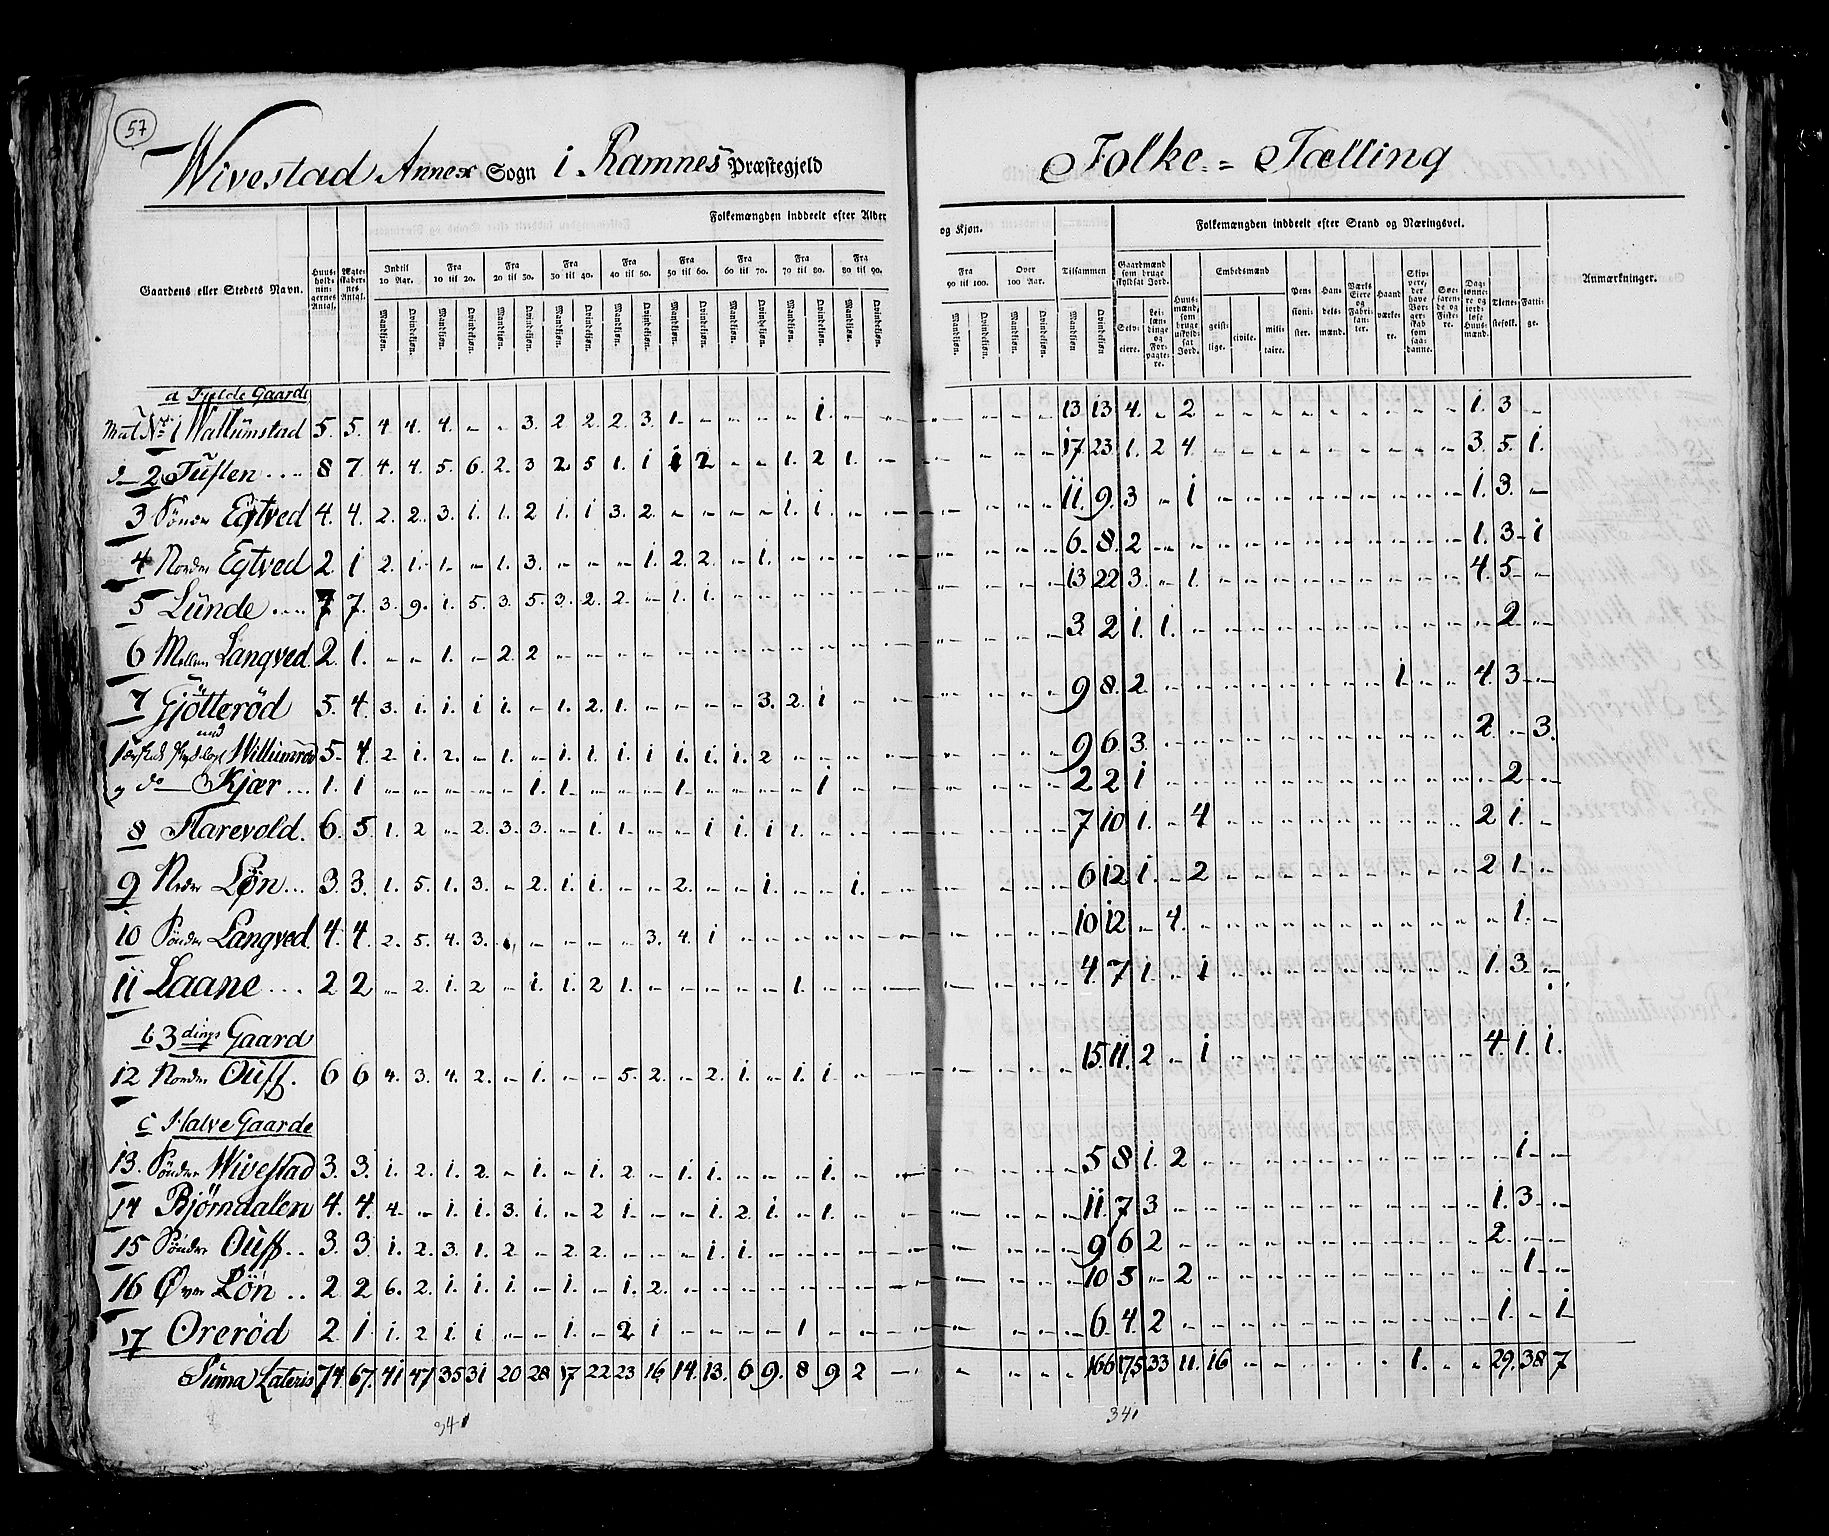 57
Wivestad Annex Sogn i Ramnes Præstegjeld
Folke-Tælling
Gaardens eller Stedets Navn.
Huus-holdningernes Antal.
Ægteskabernes Antal.
Folkemængden inddeelt efter Alder
og Kjøn.
Indtil 10 Aar.
Fra 10 til 20.
Fra 20 til 30.
Fra 30 til 40.
Fra 40 til 50.
Fra 50 til 60.
Fra 60 til 70.
Fra 70 til 80.
Fra 80 til 90.
Fra 90 til 100.
Over 100 Aar.
Tilsammen
Mandkiøn. Qvindekiøn.
Folkemængden inddeelt efter Stand og Næringsvei.
Gaardmænd som bruge skyldsat Jord.
Selveiere.
Leilændinge og Forpagtere.
Huusmænd, som bruge uskyldsat Jord.
Embedsmænd
geistlige. civile. militaire.
Pensionister.
Handelsmænd.
Værks Eiere og Fabrikanter.
Haandværkere.
Skippere, der have Borgerskab som saadanne.
Søefarende og Fiskere.
Daglønnere og jordløse Huusmænd.
Tienestefolk.
Fattige.
Anmærkninger.
a Fulde Gaarde
Mat No 1 Wallumstad 5. 5. 4 4. 4. - - 3. 2 2. 2. 3. 1. - - - - 1. - - - - - - 13 13 4. - 2 - - - - - - - - - 1. 3 -
d 2 Tuflen 8 7 4. 4. 5. 6. 2. 3 2 5 1. 1 1 2 - - 1. 2 1. - - - - - 17 23 1. 2 4. - - - - - - - - - 3. 5. 1.
3 Sønder Egtved 4. 4. 2. 2. 3. 1. 1. 2 1. 1 3. 2. - - - - 1. 1. - - - - - - 11. 9. 3 - 1 - - - - - - - - - 1. 3. -
4 Norder Egtved 2 1 2. 1. 1. - 1. 3. - - - 1. 2. 2. - 1. - - - - - - - - 6. 8. 2 - - - - - - - - - - - 1. 3 1
5 Lunde 7 7. 3. 9. 1. 5. 3. 5. 3. 2. 2. - 1. 1. - - - - - - - - - - 13 22 3. - 1. - - - - - - - - - 4. 5 -
6 Mellem Langved 2. 1. - - 1. - 2 2 - - - - - - - - - - - - - - - - 3. 2 1. 1. - - - - - - - - - - - 2 -
7 Gjøtterød 5. 4. 3. 1. 1. 1 1. - 1. 2. 1. - - - - 3. 2. 1 - - - - - - 9 8. 2. - - - - - - - - 1. - - 4. 3 -
und
Willumsrød 5. 4. 2. 1. 2. - 1. - 1. 1. 1. 1 1. 1. 1. 2 - - - - - - - - 9 6 3. - - - - - - - - - - - 2. - 3.
do Kjær 1. 1 - - - - - 1. 1. - - - 1. - - - - 1 - - - - - - 2 2 1 - - - - - - - - - - - - 2 -
8 Harevold. 6. 5. 1. 2 - 2. 3. 3. - 1. 1. - - 1 1. 1 1. - - - - - - - 7 10 1. - 4 - - - - - - - - - 2 1. -
9 Neder Løn 3. 3. 1. 5. 1. 3. - 2. 1. 1. - - 2. - - 1. - - 1. - - - - - 6 12 1. - 2 - - - - - - - - - 2 1. -
10 Sønder Langved 4. 4. 2. 5. 4. 3. - - - - - 3. 4. 1 - - - - - - - - - - 10 12 - 4. - - - - - - - - - - - 1. -
11 Laane 2 2 - 2. 1. 2 - 1. 1. 2 1. - - - - - 1. - - - - - - - 4. 7 1. - 1 - - - - - - - - - 1. 3. -
b 3dings Gaard
12 Norder Ouff. 6 6 4. 3. 4. 2. - 1. - - 5. 2. - 2. 1. - 1. 1. - - - - - - 15 11. 2 - 1 - - - - - - - - - 4. 1. 1.
c Halve Gaarde
13. Sønder Wivestad 3. 3. 1. 2. 1. 2. - 1. - 1. 2 - 1. 1. - - - 1. - - - - - - 5 8 1. 2 - - - - - - - - - - - 1. -
14 Bjørndalen 4. 4. 4. - 1. 1. 3. 1. - 2 1. - - 1. 2. 1. - 1. - - - - - - 11. 7 3 - - - - - - - - - - - 1. 3 -
15 Sønder Ouff 3. 3. 1. 2. 3. 1. 2 - 2. 2. - - - 1. 1. - - - - - - - - - 9 6 2 - - - - - - - - - - - 2. - -
16 Øvre Løn 2 2 6. 2. 1. 1. 1. - 1. - 1. 2. - - - - - - - - - - - - 10 5 - 2 - - - - - - - - - - - 1. -
17 Orerød 2 1 1. 2 1. 1 - - 1. - 2 1 - - - - 1 - - - - - - - 6. 4. 2 - - - - - - - - - - - 1. - 1
Suma Lateris 74 67. 41 47 35 31 20 28 17 22 23 16 14. 13. 6 9. 8 9 2 - - - - - 166 175 33 11. 16 - - - - - - 1. - - 29. 38 7
341
341